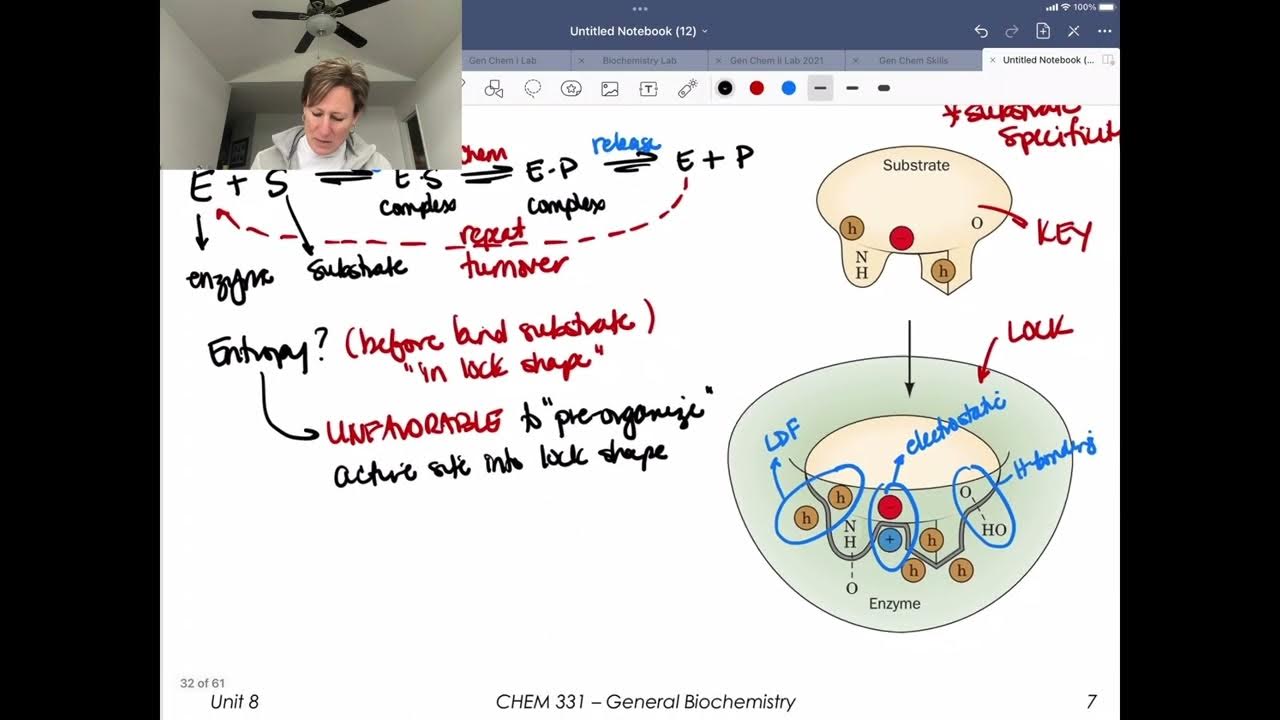 100%
Untitled Notebook (12)
Gen Chem I Lab
Biochemistry Lab
Gen Chem II Lab 2021
Gen Chem Skills
Untitled Notebook (...
* substrate
chem
release
E + S ⇌ E·S ⇌ E·P ⇌ E + P
complex
complex
repeat
turnover
enzyme
substrate
Entropy? (before bind substrate)
"in lock shape"
UNFAVORABLE to "pre-organize"
active site into lock shape
Substrate
KEY
h
-
O
N
H
h
LOCK
LDF
electrostatic
H-bonding
h
h
-
O
N
H
+
h
HO
h
h
O
Enzyme
32 of 61
Unit 8
CHEM 331 – General Biochemistry
7